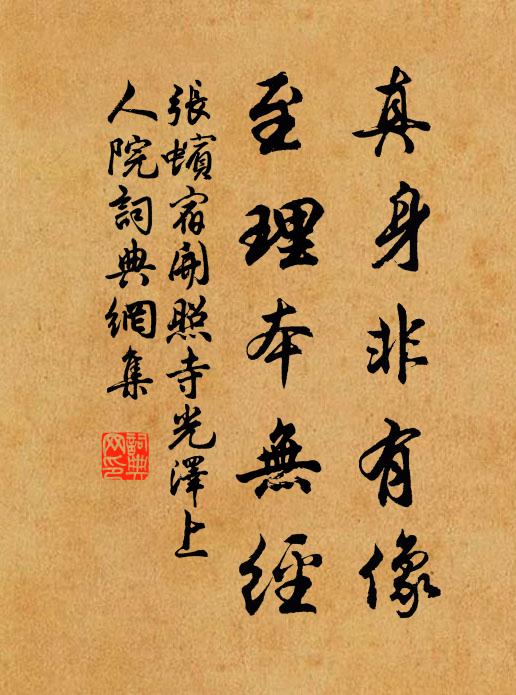 真身非有像
至理本無經
張蠙宿開照寺光澤上
人院詞典網集
詞典
网印